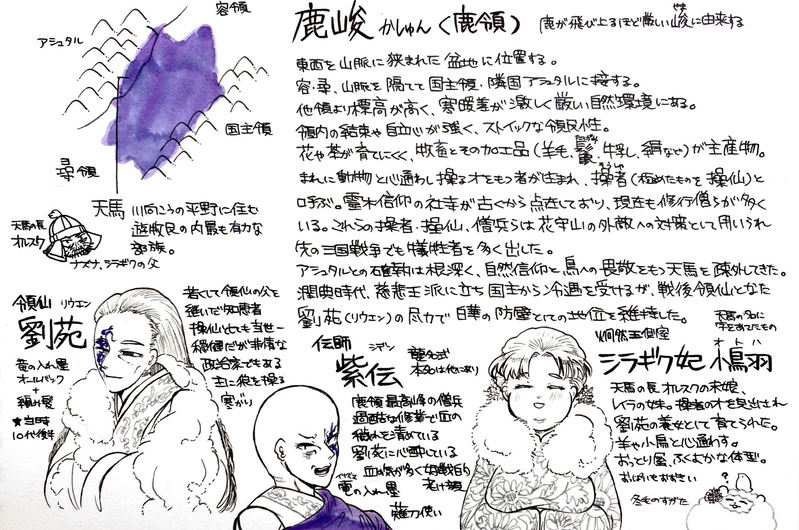 容領
アシュタル
国主領
尋領
天馬 川向こうの平野に住む
遊牧民の内最も有力な
部族。
天馬の長
オルスク
ナズナ、シラギクの父
鹿峻 かしゅん〈鹿領〉 鹿が飛び上るほど厳しい峻に由来する
やま
東西を山脈に狭まれた盆地に位置する。
容・尋、山脈を隔てて国主領・隣国アシュタルに接する。
他領より標高が高く、寒暖差が激しく厳しい自然環境にある。
領内の結束や自立心が強く、ストイックな領民性。
花や茶が育てにくく、牧畜とその加工品(羊毛、鬣、牛乳、絹など)が主産物。
まれに動物と心通わし操る才をもつ者が生まれ、操者(極めたものを操仙)と
そうしゃ
呼ぶ。霊木信仰の社寺が古くから点在しており、現在も修行僧らが多く
いる。これらの操者・操仙、僧兵らは花守山の外敵への対策として用いられ
先の三国戦争でも犠牲者を多く出した。
アシュタルとの確執は根深く、自然信仰と鳥への畏敬をもつ天馬を疎外してきた。
潤典時代、慈悲王派に立ち国主から冷遇を受けるが、戦後領仙となった
劉苑(リウエン)の尽力で日華の防塵としての地位を維持した。
領仙 リウエン
劉苑
竜の入れ墨
オールバック
+
編み髪
★当時
10代後半
若くして領仙の父を
継いだ知恵者
操仙としても当世一
穏健だが非情な
政治家でもある
主に狼を操る
寒がり
伝師 シデン
紫伝 龍名式
本名は他にあり
鹿領最高峰の僧兵
過酷な修業で血の
穢れを清めている
劉苑に心酔している
血の気が多く好戦的
竜の入れ墨 老け顔
イヤだと
薙刀使い
炯然王側室 天馬の名に
字をあてたもの
オトハ
シラギク妃 小鳥羽
天馬の長オルスクの末娘、
レイラの妹。操者の才を見出され
劉苑の養女として育てられた。
羊や小鳥と心通わす。
おっとり屋、ふくよかな体型。
おしりもおおきい
冬毛のすがた
?